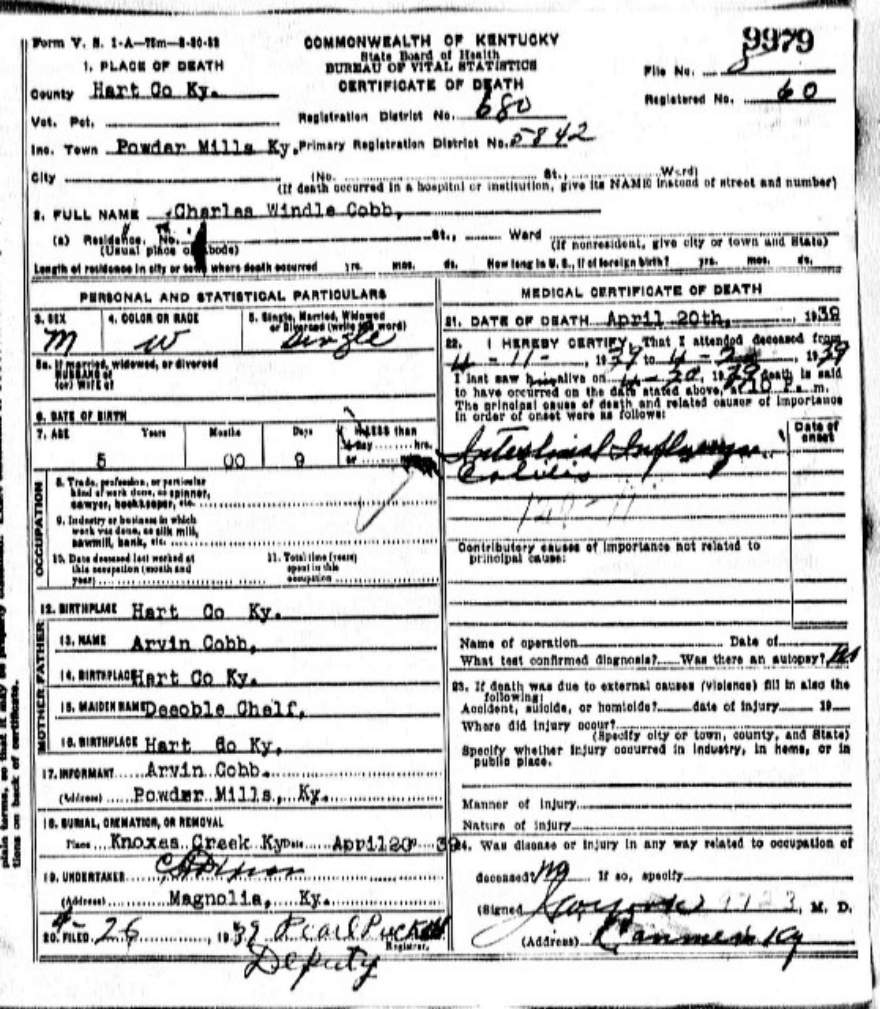 Form V. S. 1-A—75m—8-30-38
COMMONWEALTH OF KENTUCKY
State Board of Health
BUREAU OF VITAL STATISTICS
CERTIFICATE OF DEATH
9979
File No.
Registered No. 60
1. PLACE OF DEATH
County Hart Co Ky.
Vot. Pct.
Registration District No. 680
Inc. Town Powder Mills Ky. Primary Registration District No. 5842
City (No. St., Ward)
(If death occurred in a hospital or institution, give its NAME instead of street and number)
2. FULL NAME Charles Windle Cobb,
(a) Residence, No. St., Ward (If nonresident, give city or town and State)
(Usual place of abode)
Length of residence in city or town where death occurred yrs. mos. ds. How long in U. S., if of foreign birth? yrs. mos. ds.
PERSONAL AND STATISTICAL PARTICULARS
3. SEX M
4. COLOR OR RACE W
5. Single, Married, Widowed or Divorced (write the word) Single
5a. If married, widowed, or divorced
HUSBAND of
(or) WIFE of
6. DATE OF BIRTH
7. AGE Years Months Days If LESS than
1 day hrs.
5 00 9 or
OCCUPATION
8. Trade, profession, or particular
kind of work done, as spinner,
sawyer, bookkeeper, etc.
9. Industry or business in which
work was done, as silk mill,
sawmill, bank, etc.
10. Date deceased last worked at
this occupation (month and
year)
11. Total time (years)
spent in this
occupation
12. BIRTHPLACE Hart Co Ky.
FATHER
13. NAME Arvin Cobb,
14. BIRTHPLACE Hart Co Ky.
MOTHER
15. MAIDEN NAME Decoble Chelf,
16. BIRTHPLACE Hart Co Ky,
17. INFORMANT Arvin Cobb.
(Address) Powder Mills, Ky.
18. BURIAL, CREMATION, OR REMOVAL
Place Knoxes Creek Ky Date April 20 39
19. UNDERTAKER
(Address) Magnolia, Ky.
20. FILED 4-26, 1939 Pearl Puckett
Registrar.
Deputy
MEDICAL CERTIFICATE OF DEATH
21. DATE OF DEATH April 20th, 1939
22. I HEREBY CERTIFY, That I attended deceased from
4-11-, 1939 to 4-20, 1939
I last saw him alive on 4-20, 1939 death is said
to have occurred on the date stated above, at P. m.
The principal cause of death and related causes of importance
in order of onset were as follows:
Date of
onset
Intestinal Influenza
Colitis
Contributory causes of importance not related to
principal cause:
Name of operation Date of
What test confirmed diagnosis? Was there an autopsy? No
23. If death was due to external causes (violence) fill in also the
following:
Accident, suicide, or homicide? date of injury 19
Where did injury occur?
(Specify city or town, county, and State)
Specify whether injury occurred in industry, in home, or in
public place.
Manner of injury
Nature of injury
24. Was disease or injury in any way related to occupation of
deceased? No If so, specify
(Signed M. D.
(Address) Ky
plain terms, so that it may be properly
tions on back of certificate.